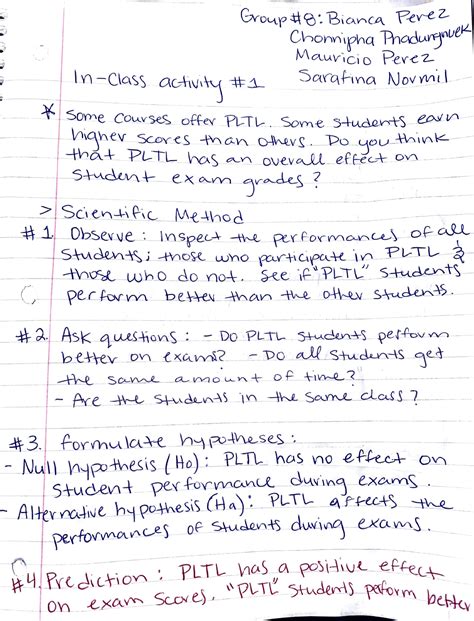 Group #8: Bianca Perez
Chonnipha Thadungnuek
Mauricio Perez
In-Class activity #1 Sarafina Normil
* Some courses offer PLTL. Some students earn
higher scores than others. Do you think
that PLTL has an overall effect on
student exam grades?
> Scientific Method
#1 Observe: Inspect the performances of all
students; those who participate in PLTL &
those who do not. See if "PLTL" students
perform better than the other students.
#2. Ask questions: - Do PLTL students perform
better on exams? - Do all students get
the same amount of time?
- Are the students in the same class?
#3. formulate hypotheses:
- Null hypothesis (Ho): PLTL has no effect on
student performance during exams.
- Alternative hypothesis (Ha): PLTL affects the
performances of students during exams.
#4. Prediction: PLTL has a positive effect
on exam scores. "PLTL" students perform better